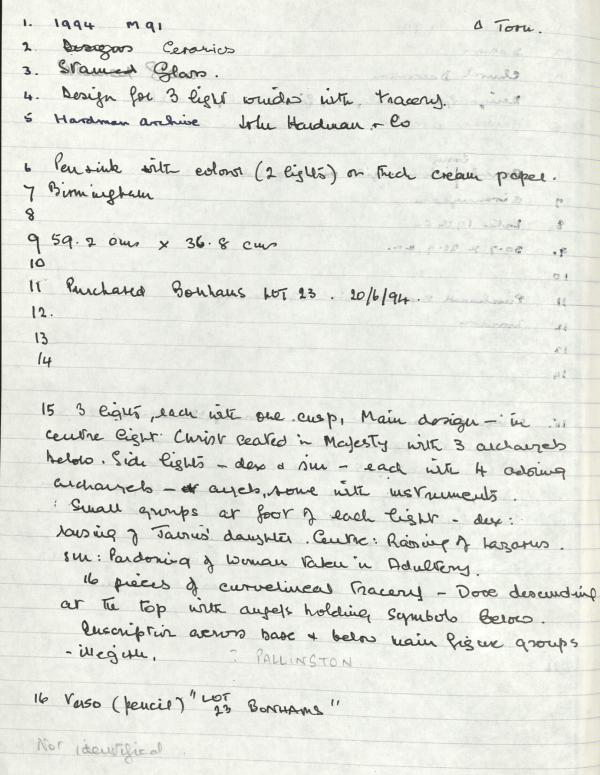 1. 1994 M91 Δ Torn.
2 Designs Ceramics
3. Stained Glass.
4. Design for 3 light window with tracery.
5 Hardman archive John Hardman & Co
6 Pen & ink with colour (2 lights) on thick cream paper.
7 Birmingham
8
9 59.2 cms x 36.8 cms
10
11 Purchased Bonhams LOT 23. 20/6/94.
12.
13
14
15 3 lights, each with one cusp, Main design - in
centre light Christ seated in Majesty with 3 archangels
below. Side lights - dex & sin - each with 4 adoring
archangels - angels, some with instruments.
: Small groups at foot of each light - dex:
raising of Jairus' daughter. Centre: Raising of Lazarus.
sin: Pardoning of Woman taken in Adultery.
16 pieces of curvelineal Tracery - Dove descending
at the top with angels holding symbols below.
Inscription across base & below main figure groups
- illegible. ? PALLINSTON
16 Verso (pencil) "LOT 23 BONHAMS"
Not identified